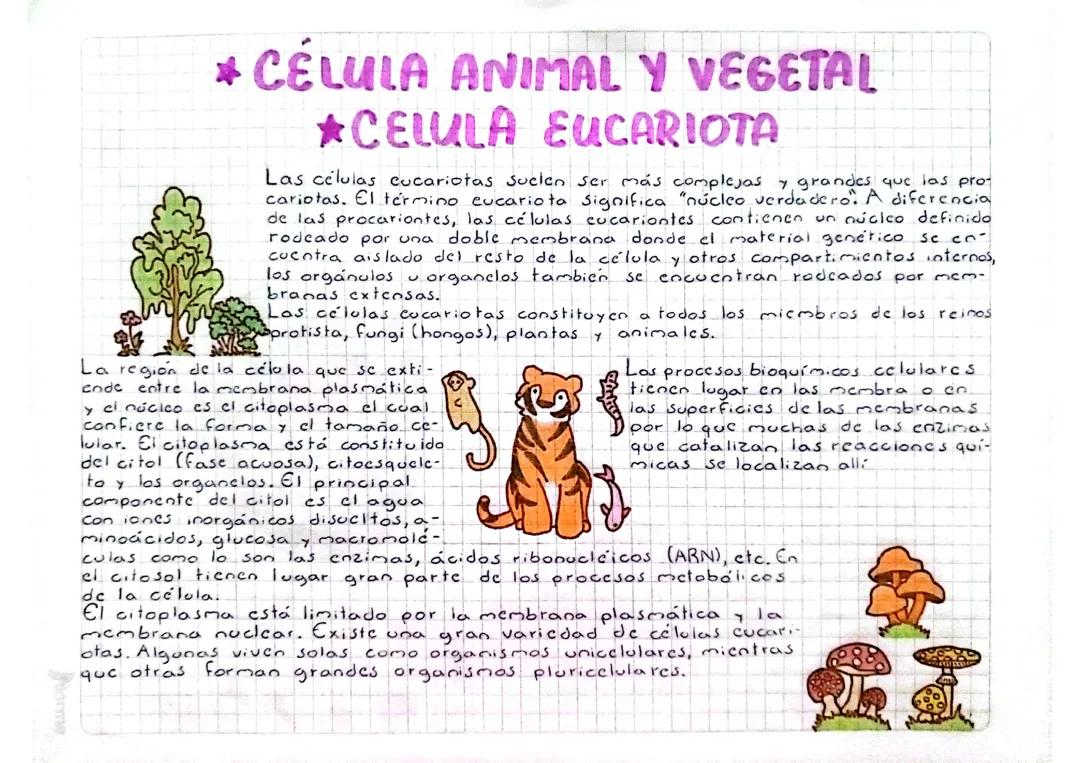 ★ CÉLULA ANIMAL Y VEGETAL
★ CELULA EUCARIOTA
Las células eucariotas suelen ser más complejas y grandes que las pro-
cariotas. El término eucariota significa "núcleo verdadero". A diferencia
de las procariontes, las células eucariontes contienen un núcleo definido
rodeado por una doble membrana donde el material genético se en-
cuentra aislado del resto de la célula y otros compartimientos internos,
los orgánulos u organelos también se encuentran rodeados por mem-
branas extensas.
Las células eucariotas constituyen a todos los miembros de los reinos
protista, fungi (hongos), plantas y animales.
La región de la célula que se exti-
ende entre la membrana plasmática
y el núcleo es el citoplasma el cual
confiere la forma y el tamaño ce-
lular. El citoplasma está constituido
del citol (fase acuosa), citoesquele-
to y los organelos. El principal
componente del citol es el agua
con iones inorgánicos disueltos, a-
minoácidos, glucosa y macromolé-
culas como lo son las enzimas, ácidos ribonucléicos (ARN), etc. En
el citosol tienen lugar gran parte de los procesos metabólicos
de la célula.
El citoplasma está limitado por la membrana plasmática y la
membrana nuclear. Existe una gran variedad de células eucari-
otas. Algunas viven solas como organismos unicelulares, mientras
que otras forman grandes organismos pluricelulares.
Los procesos bioquímicos celulares
tienen lugar en las membra o en
las superficies de las membranas
por lo que muchas de las enzimas
que catalizan las reacciones quí-
micas se localizan allí